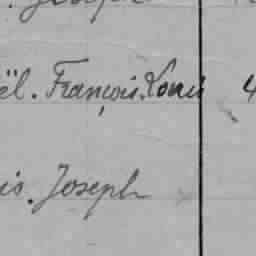 . Joseph
ël. François. Louis 4
is. Joseph